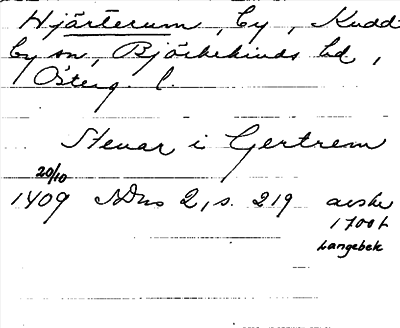 Hjärterum, by, Kudd-
by sn, Björkekinds hd,
Österg. l.
Stenar i Gertrem
20/10
1409 SDns 2, s. 219 avskr
1700t
Langebek